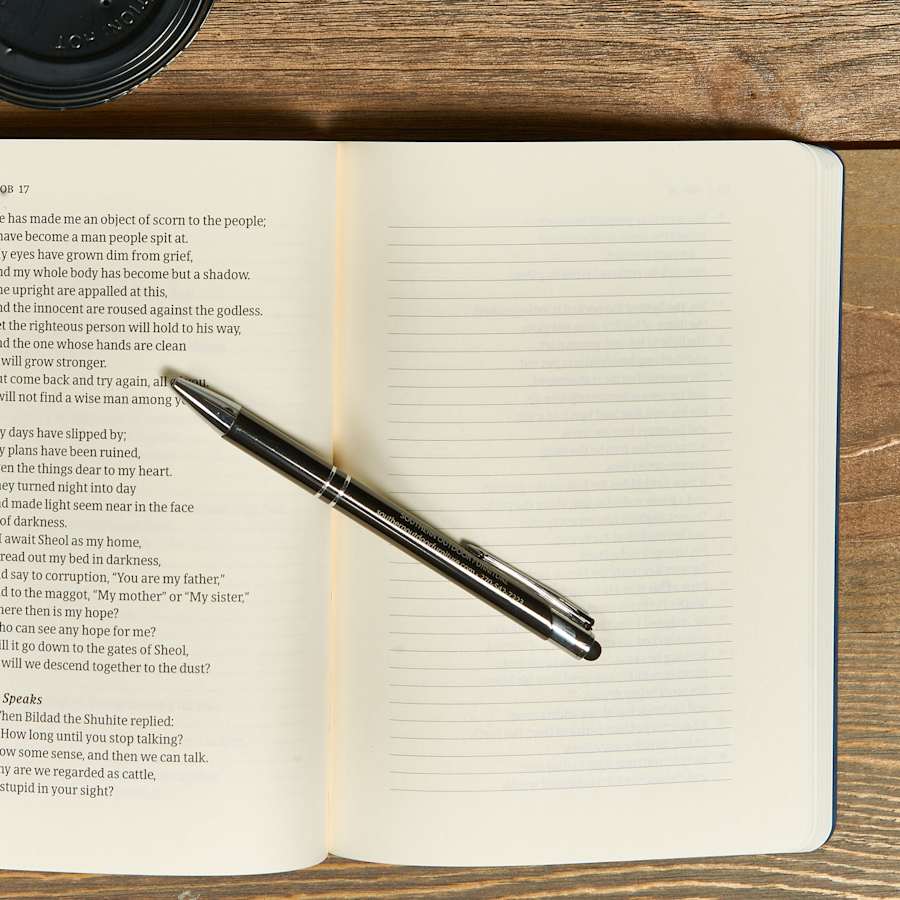 TION: HOT
OB 17
e has made me an object of scorn to the people;
have become a man people spit at.
y eyes have grown dim from grief,
nd my whole body has become but a shadow.
he upright are appalled at this,
nd the innocent are roused against the godless.
et the righteous person will hold to his way,
nd the one whose hands are clean
will grow stronger.
ut come back and try again, all of you.
will not find a wise man among
y days have slipped by;
y plans have been ruined,
en the things dear to my heart.
hey turned night into day
nd made light seem near in the face
of darkness.
I await Sheol as my home,
read out my bed in darkness,
nd say to corruption, “You are my father,”
nd to the maggot, “My mother” or “My sister,”
here then is my hope?
ho can see any hope for me?
ill it go down to the gates of Sheol,
will we descend together to the dust?
Speaks
Then Bildad the Shuhite replied:
How long until you stop talking?
ow some sense, and then we can talk.
hy are we regarded as cattle,
stupid in your sight?
SOUTHERN OUTDOOR FURNITURE
southernoutdoorfurniture.com